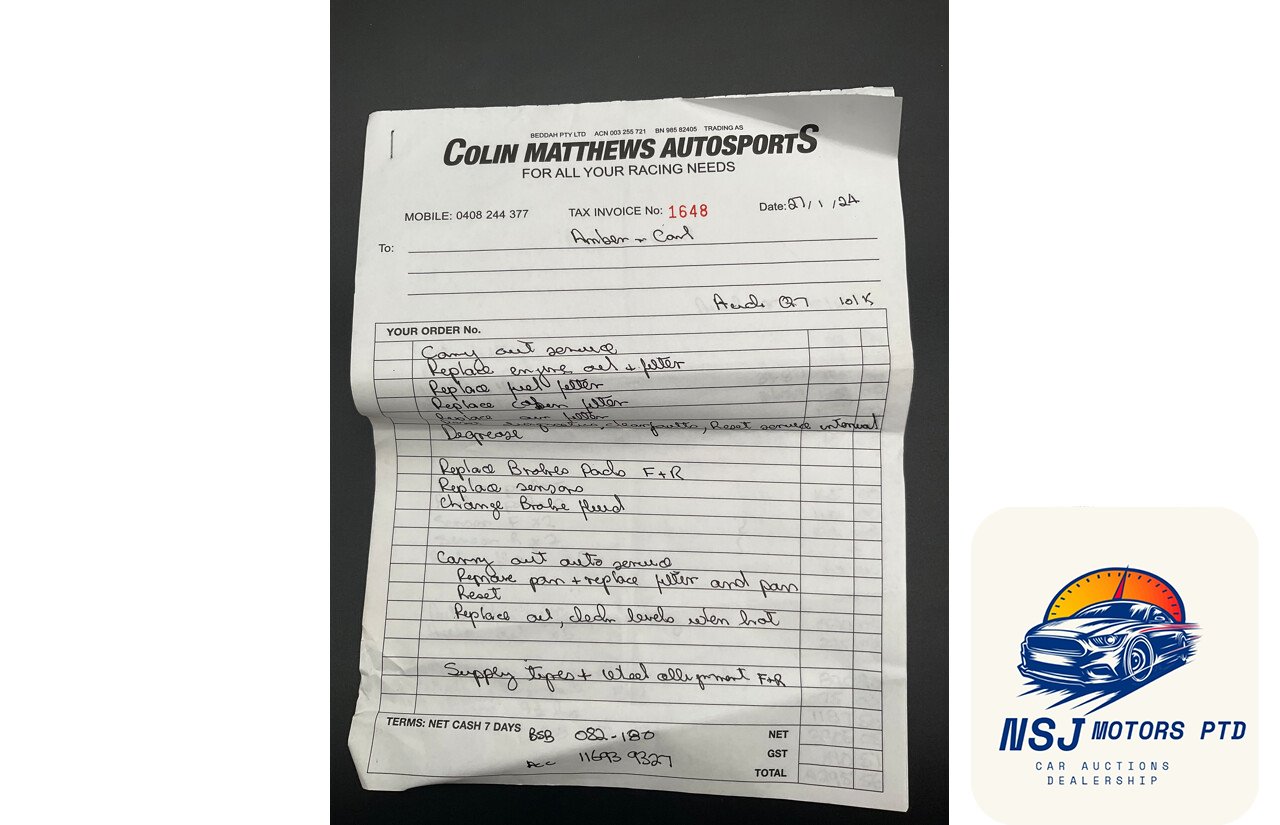 BEDDAH PTY LTD ACN 003 255 721 BN 985 82405 TRADING AS
COLIN MATTHEWS AUTOSPORTS
FOR ALL YOUR RACING NEEDS
MOBILE: 0408 244 377 TAX INVOICE No: 1648 Date: 27/1/24
To: Amber + Carl
Audi Q7
YOUR ORDER No.
Carry out service
Replace engine oil + filter
Replace fuel filter
Replace cabin filter
Replace air filter
clear faults, Reset service interval
Degrease
Replace Brakes Pads F+R
Replace sensors
Change Brake fluid
Carry out auto service
Remove pan + replace filter and pan
Reset
Replace oil, check levels when hot
Supply tyres + wheel allignment F+R
TERMS: NET CASH 7 DAYS BSB 082-180 NET
Acc 11693 9327 GST
TOTAL
NSJ MOTORS PTD
CAR AUCTIONS
DEALERSHIP